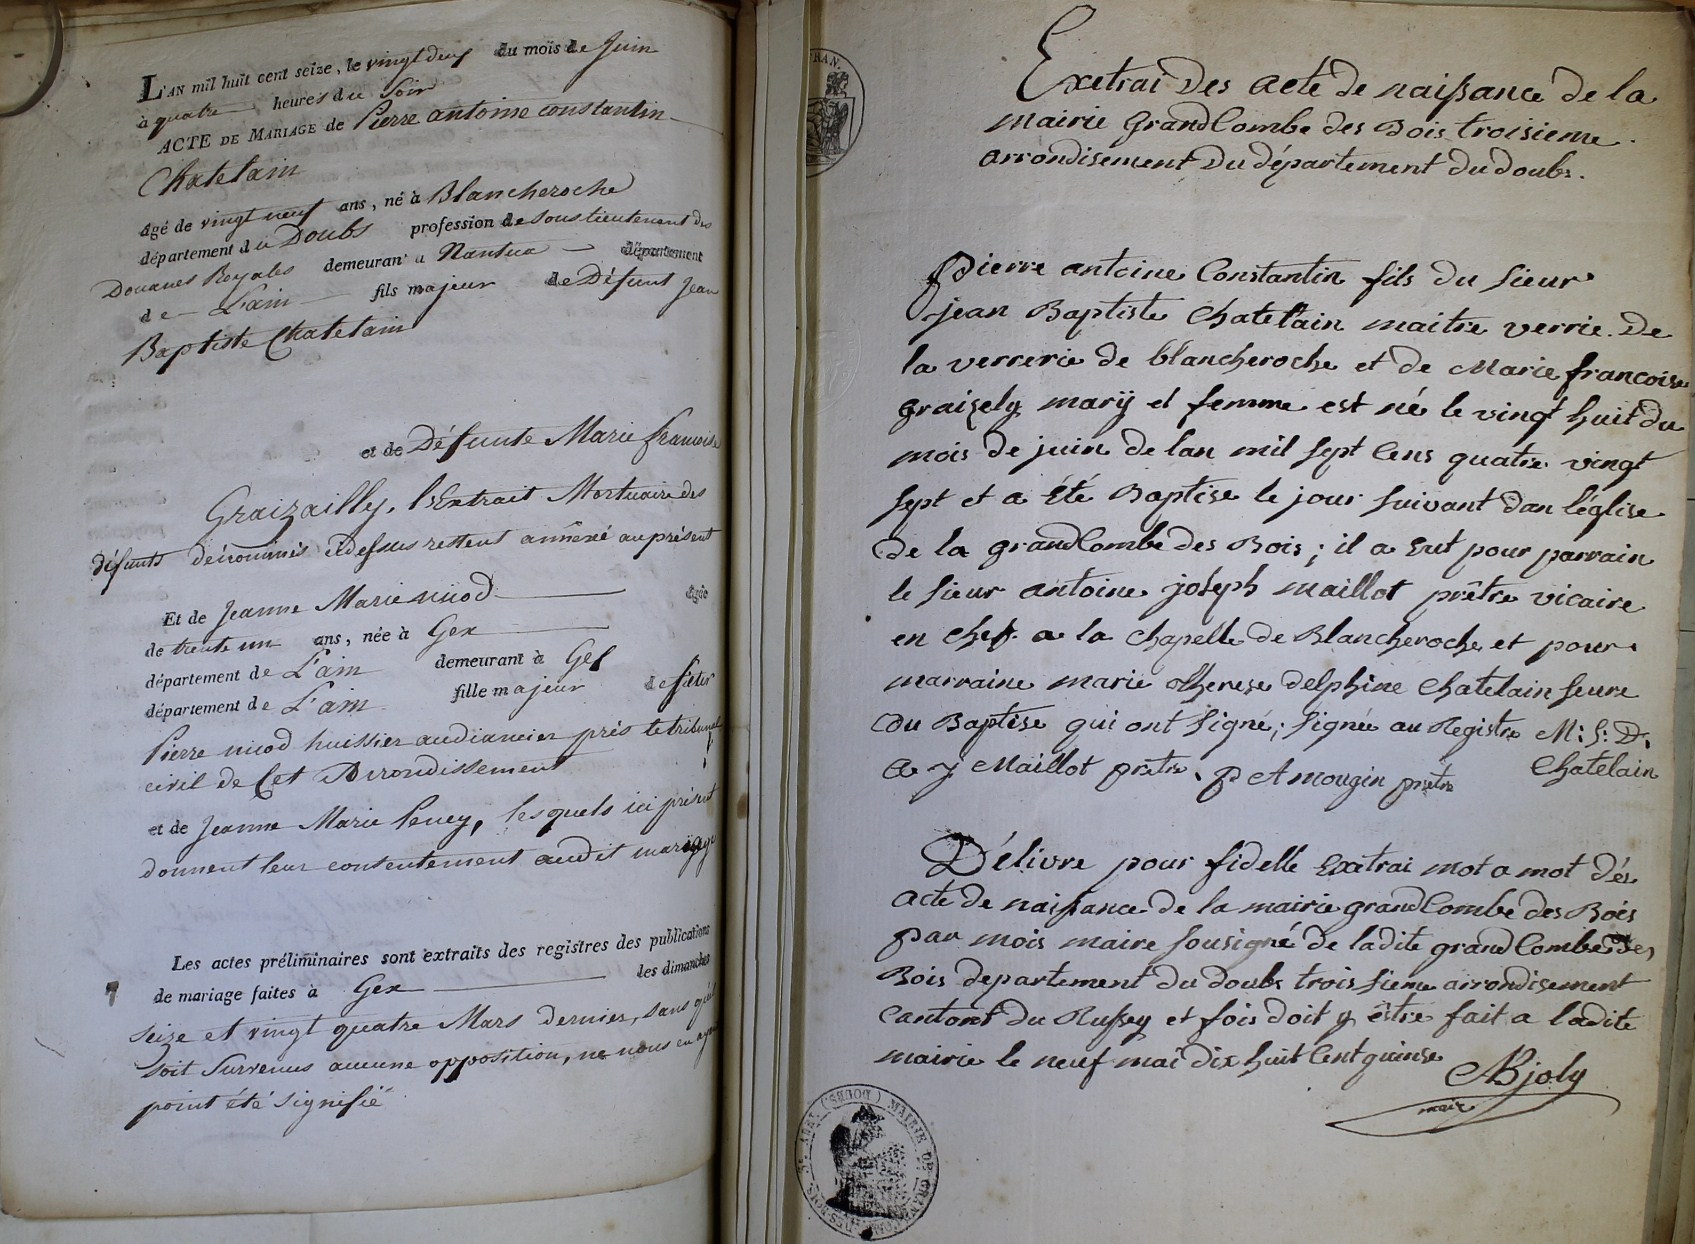 L'AN mil huit cent seize, le vingt deux du mois de Juin
à quatre heures du Soir
ACTE DE MARIAGE de Pierre antoine constantin
Chatelain
âgé de vingt neuf ans, né à Blancheroche
département du Doubs profession de Sous lieutenant des
Douanes Royales demeurant à Nantua département
de L'ain fils majeur de Défunt Jean
Baptiste Chatelain
et de Défunte Marie francoise
Graizailly, l'Extrait Mortuaire des
défunts dénommés cidessus restent annéxé au présent
Et de Jeanne Marie nicod âgée
de trente un ans, née à Gex
département de L'ain demeurant à Gex
département de L'ain fille majeur de Sieur
Pierre nicod huissier audiancier près le tribunal
civil de Cet Arrondissement
et de Jeanne Marie Pency, lesquels ici présent
donnent leur contentement audit mariage
Les actes préliminaires sont extraits des registres des publications
de mariage faites à Gex les dimanches
seize et vingt quatre Mars dernier, sans qu'il
soit Survenus aucune opposition, ne nous en ayant
point été signifié
Exetrai Des acte de naissance de la
mairie GrandCombe des Bois troisieme
arrondisement Du département du doubs.
Pierre antoine Constantin fils du sieur
jean Baptiste Chatelain maitre verrie De
la verrerie de blancheroche et de Marie francoise
graizely marÿ et femme est né le vingt huit du
mois de juin de lan mil sept Cens quatre vingt
sept et a été Baptise le jour suivant dan léglise
de la grandCombe des Bois; il a Eut pour parrain
le sieur antoine joseph maillot prêtre vicaire
en chef a la Chapelle de Blancheroche et pour
marraine marie therese delphine Chatelain seure
du Baptise qui ont signé; signée au Registre M: S: D:
Chatelain
a y Maillot pretre. p A mougin pretre
Délivre pour fidelle Exetrai mot a mot dés
acte De naissance de la mairie grandCombe des Bois
par mois maire sousigné de ladite grandCombe des
Bois departement du doubs trois sieme arrondisement
Cantont du Russey et fois doit y être fait a ladite
mairie le neuf mai dix huit Cent quinse
ABjoly
maire